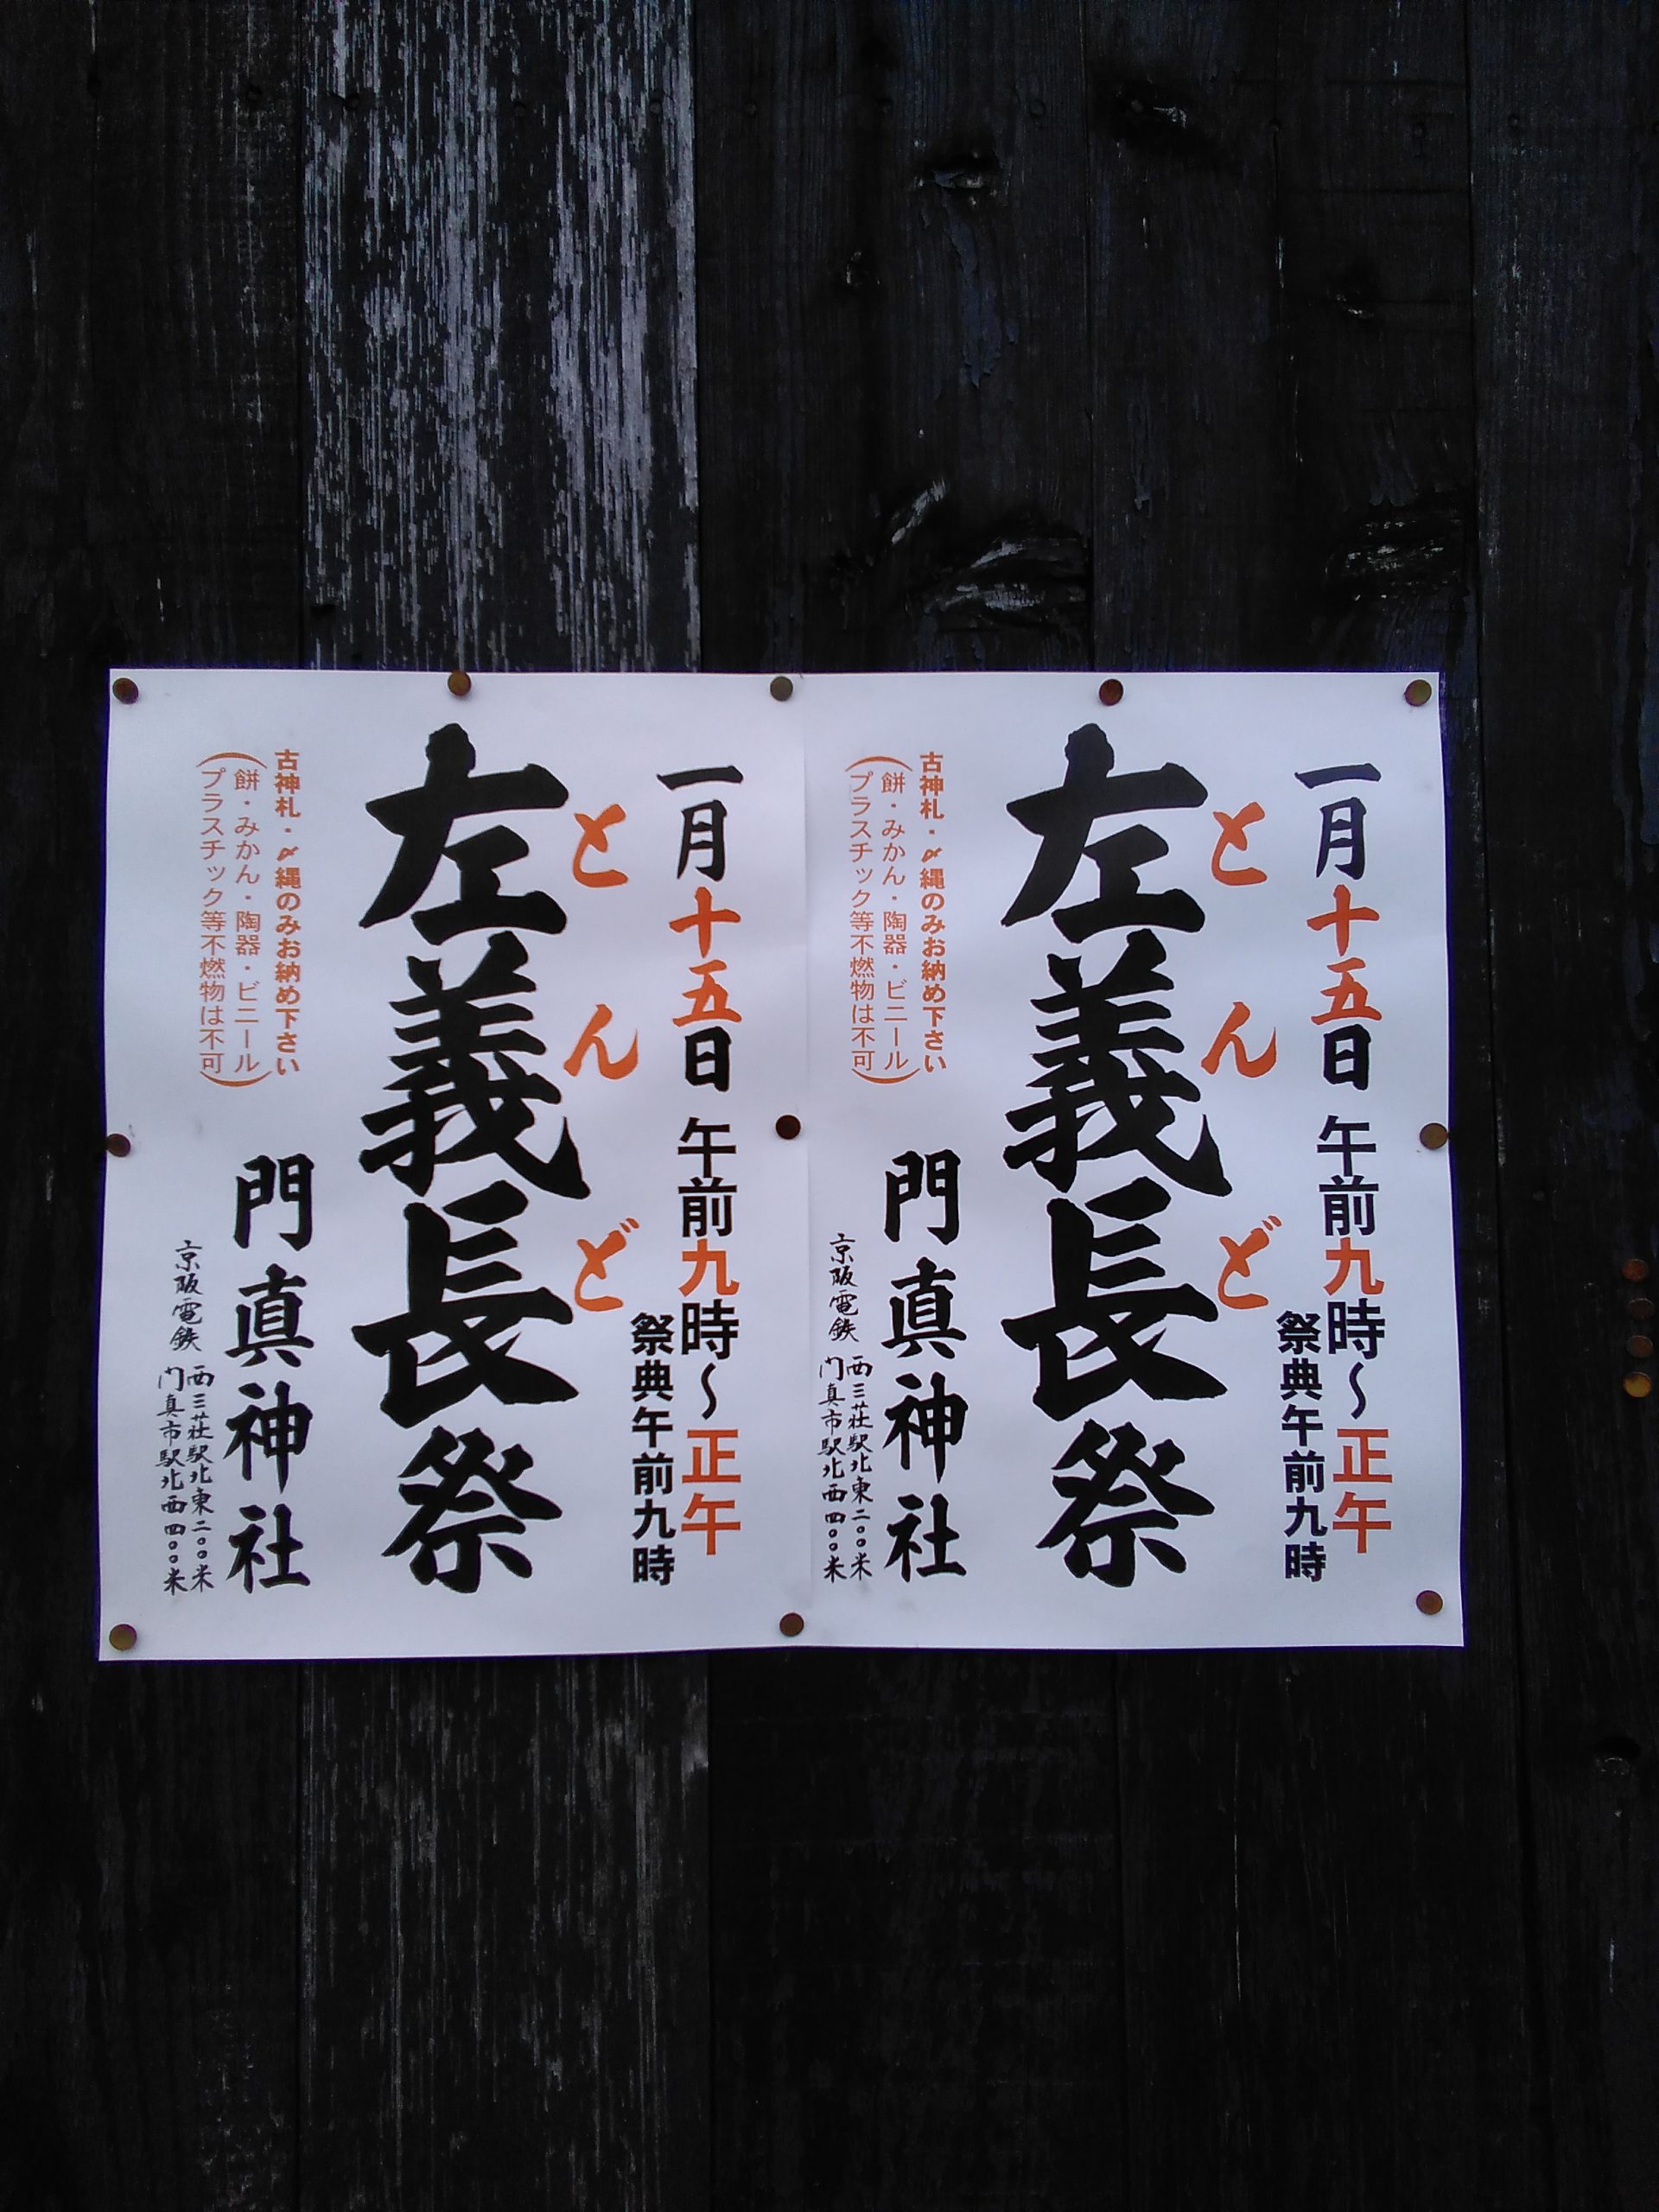 一月十五日 午前九時〜正午
祭典午前九時
とんど
左義長祭
古神札・〆縄のみお納め下さい
(餅・みかん・陶器・ビニール
プラスチック等不燃物は不可)
門真神社
京阪電鉄
西三荘駅北東二〇〇米
门真市駅北西四〇〇米
一月十五日 午前九時〜正午
祭典午前九時
とんど
左義長祭
古神札・〆縄のみお納め下さい
(餅・みかん・陶器・ビニール
プラスチック等不燃物は不可)
門真神社
京阪電鉄
西三荘駅北東二〇〇米
门真市駅北西四〇〇米